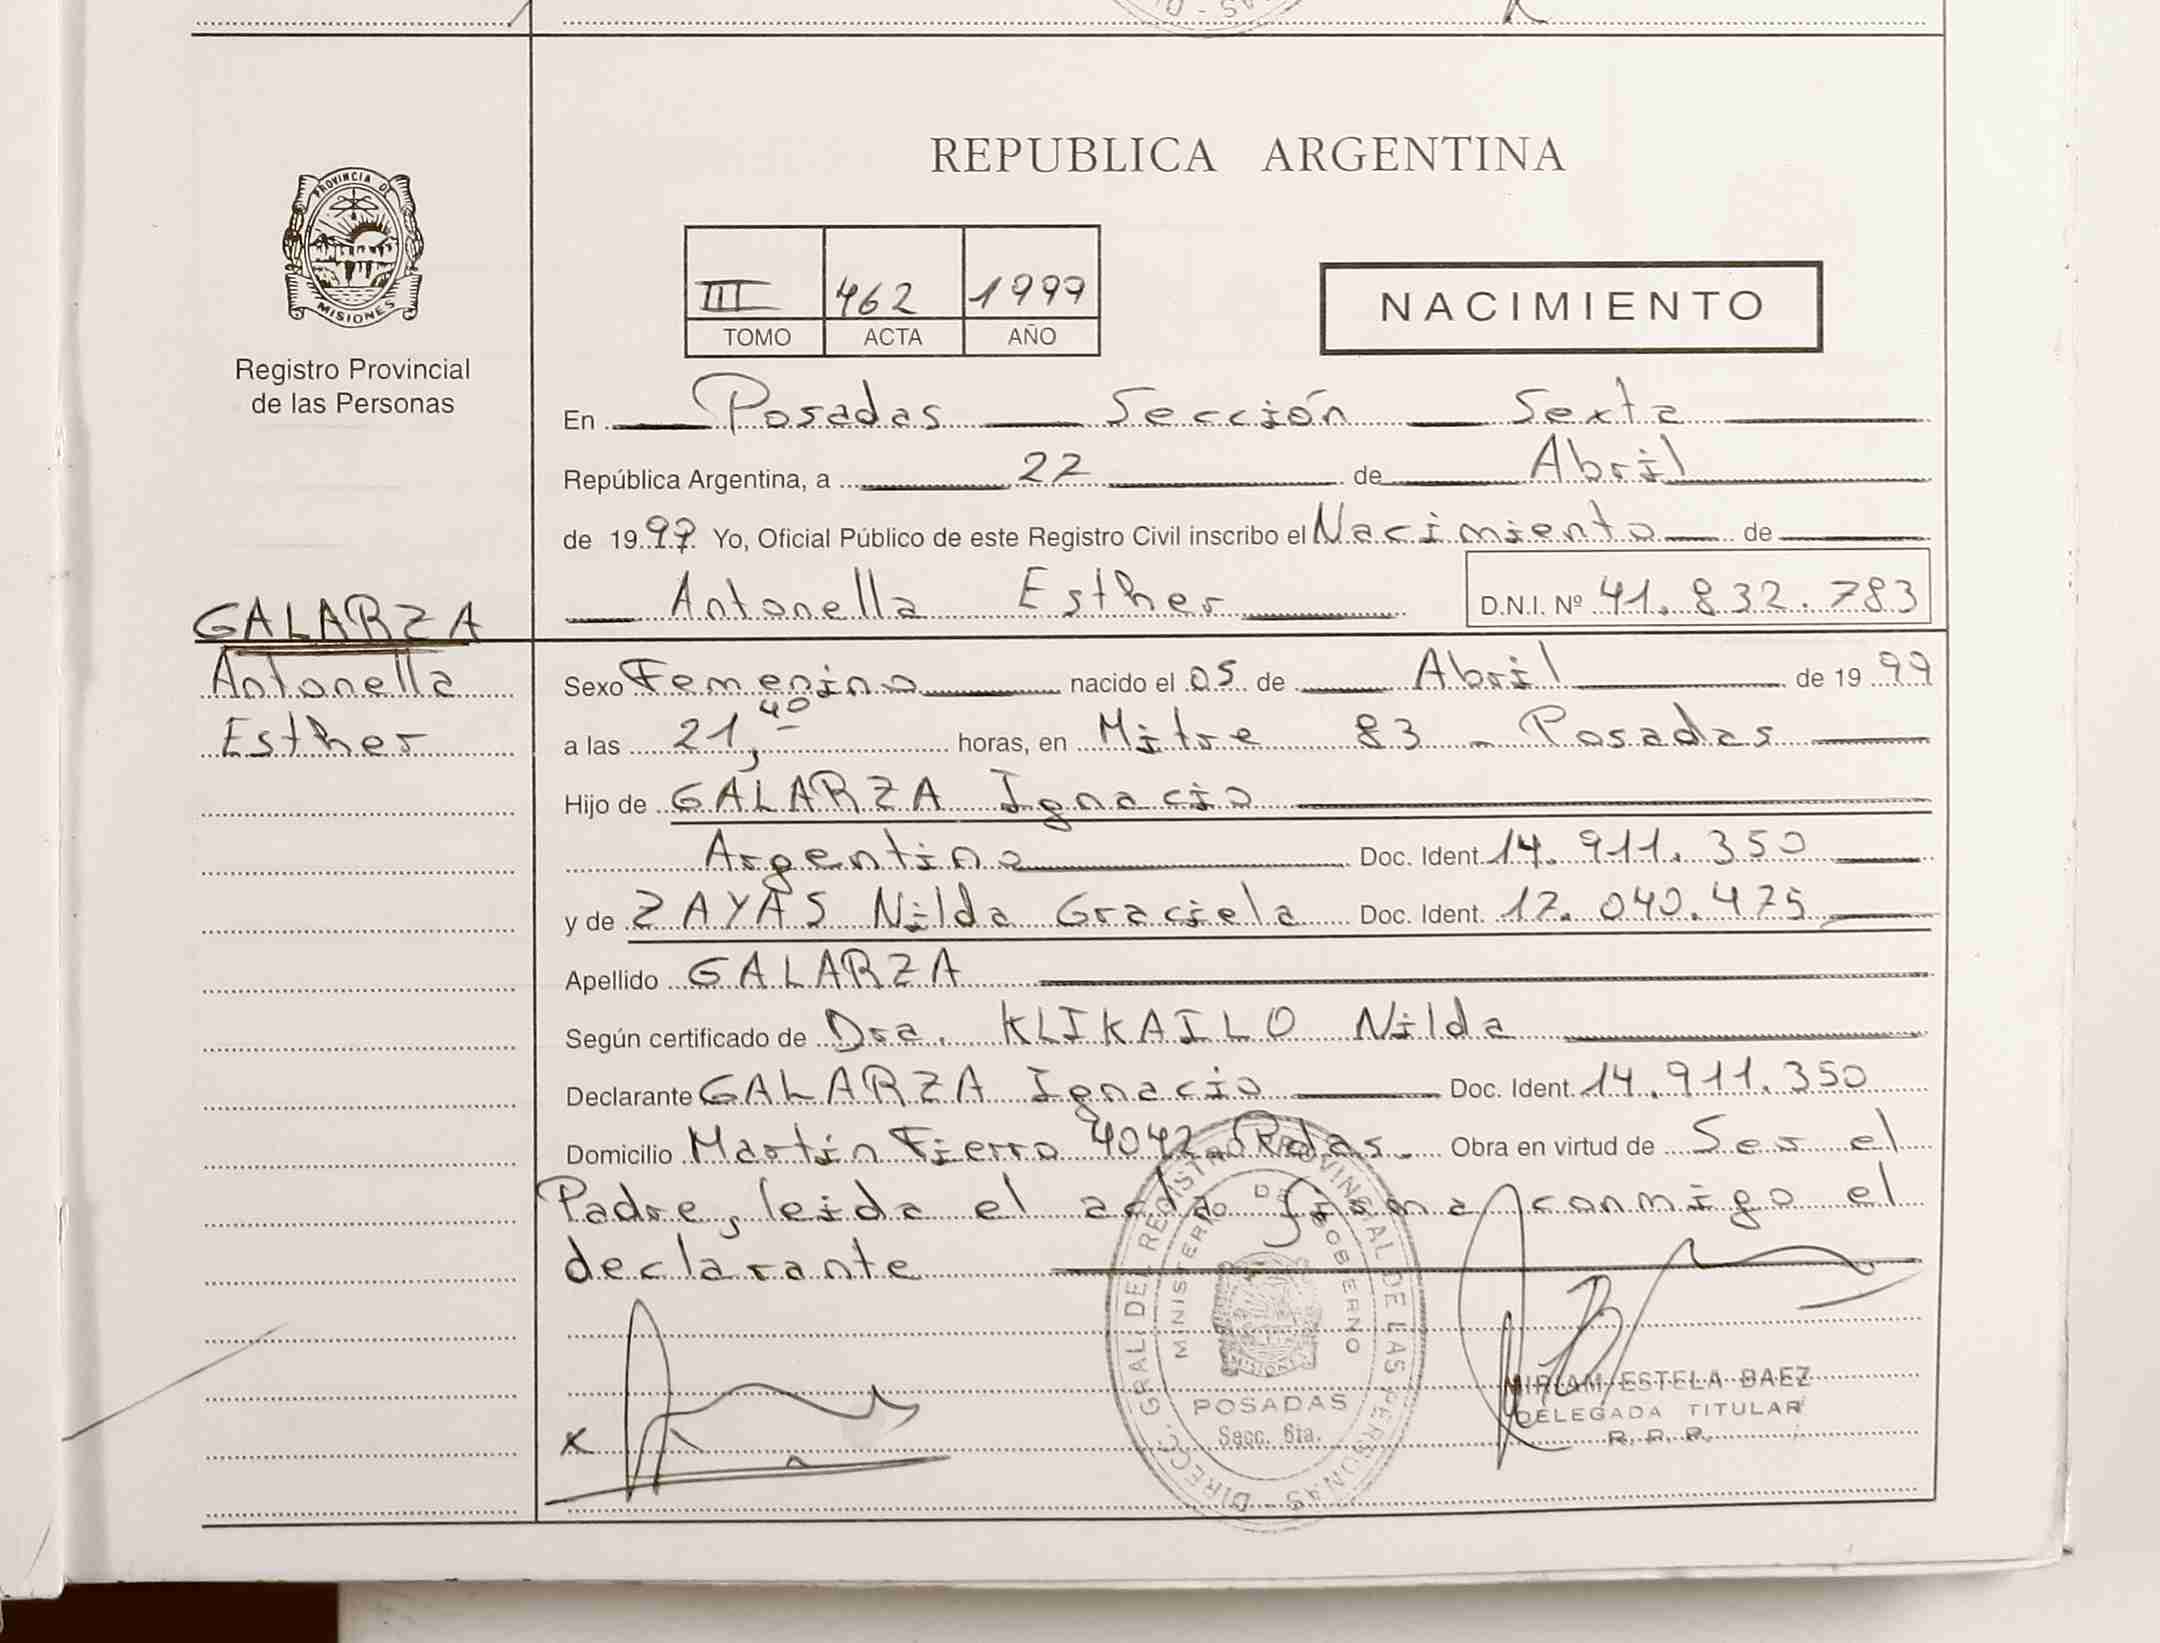 REPUBLICA ARGENTINA
PROVINCIA DE
MISIONES
Registro Provincial
de las Personas
III 462 1999
TOMO ACTA AÑO
NACIMIENTO
En Posadas Sección Sexta
República Argentina, a 22 de Abril
de 1999 Yo, Oficial Público de este Registro Civil inscribo el Nacimiento de
Antonella Esther D.N.I. Nº 41.832.783
GALARZA
Antonella
Esther
Sexo Femenino nacido el 05 de Abril de 1999
a las 21,40 horas, en Mitre 83 - Posadas
Hijo de GALARZA Ignacio
Argentino Doc. Ident. 14.911.350
y de ZAYAS Nilda Graciela Doc. Ident. 17.040.475
Apellido GALARZA
Según certificado de Dra. KLIKAILO Nilda
Declarante GALARZA Ignacio Doc. Ident. 14.911.350
Domicilio Martín Fierro 4042 Pdas. Obra en virtud de Ser el
Padre, leida el acta firma conmigo el
declarante
DIRECC. GRAL DEL REGISTRO PROVINCIAL DE LAS PERSONAS
MINISTERIO DE GOBIERNO
MISIONES
POSADAS
Secc. 6ta.
x
MIRIAM ESTELA BAEZ
DELEGADA TITULAR
R. P. P.